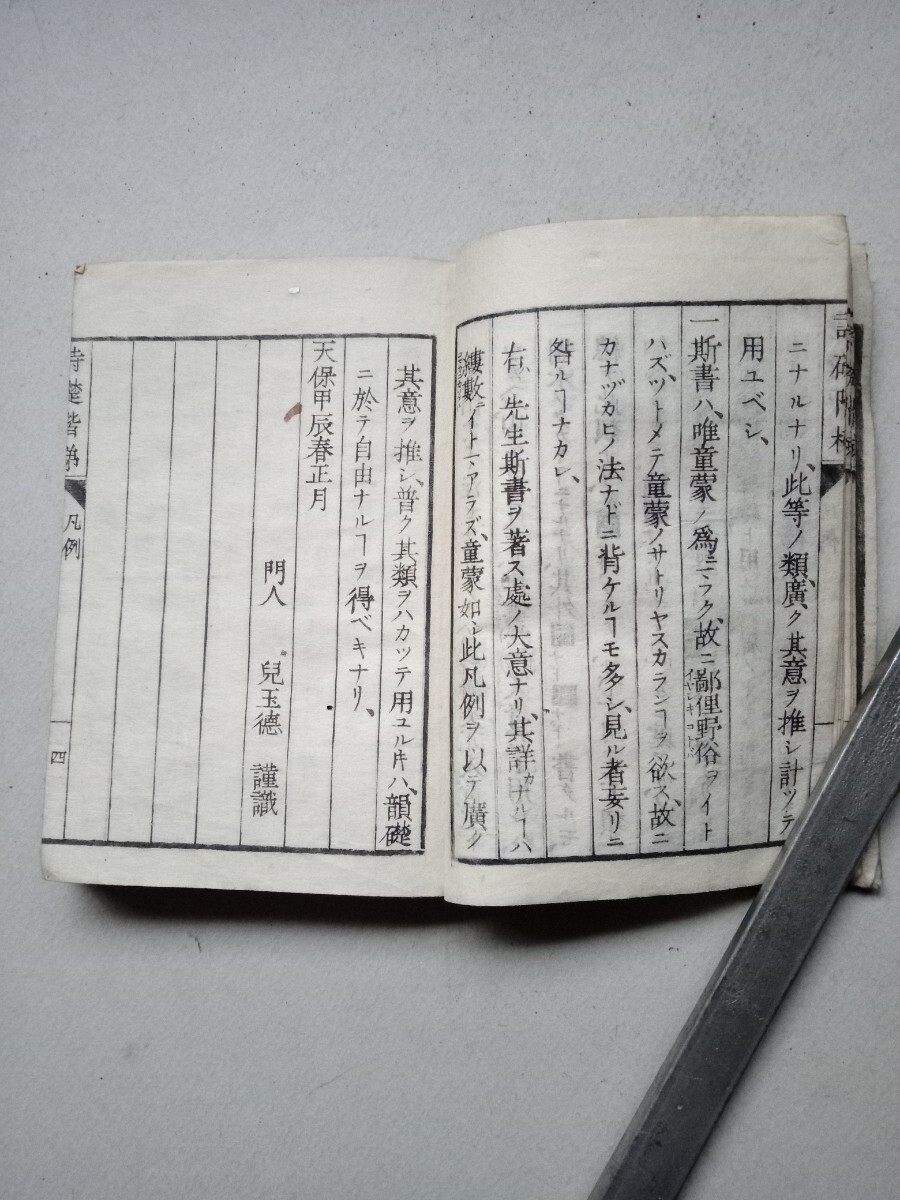 ニナルナリ、此等ノ類、廣ク其意ヲ推シ計ツテ
用ユベシ、
一斯書ハ、唯童蒙ノ爲ニ、フク、故ニ鄙俚野俗ヲイト
イヤシキコトバ
ハズ、ツトメテ童蒙ノサトリヤスカランヿヲ欲ス、故ニ
カナヅカヒノ法ナドニ背ケルヿモ多シ、見ル者妄リニ
咎ルヿナカレ、
右、先生斯書ヲ著ス處ノ大意ナリ、其詳カナルヿハ
縷數ニイトマアラズ、童蒙如シ此凡例ヲ以テ廣ク
其意ヲ推シ、普ク其類ヲハカツテ用ユルキハ、韻礎
ニ於テ自由ナルヿヲ得ベキナリ、
天保甲辰春正月
門人 兒玉德 謹識
階弟
凡例
四